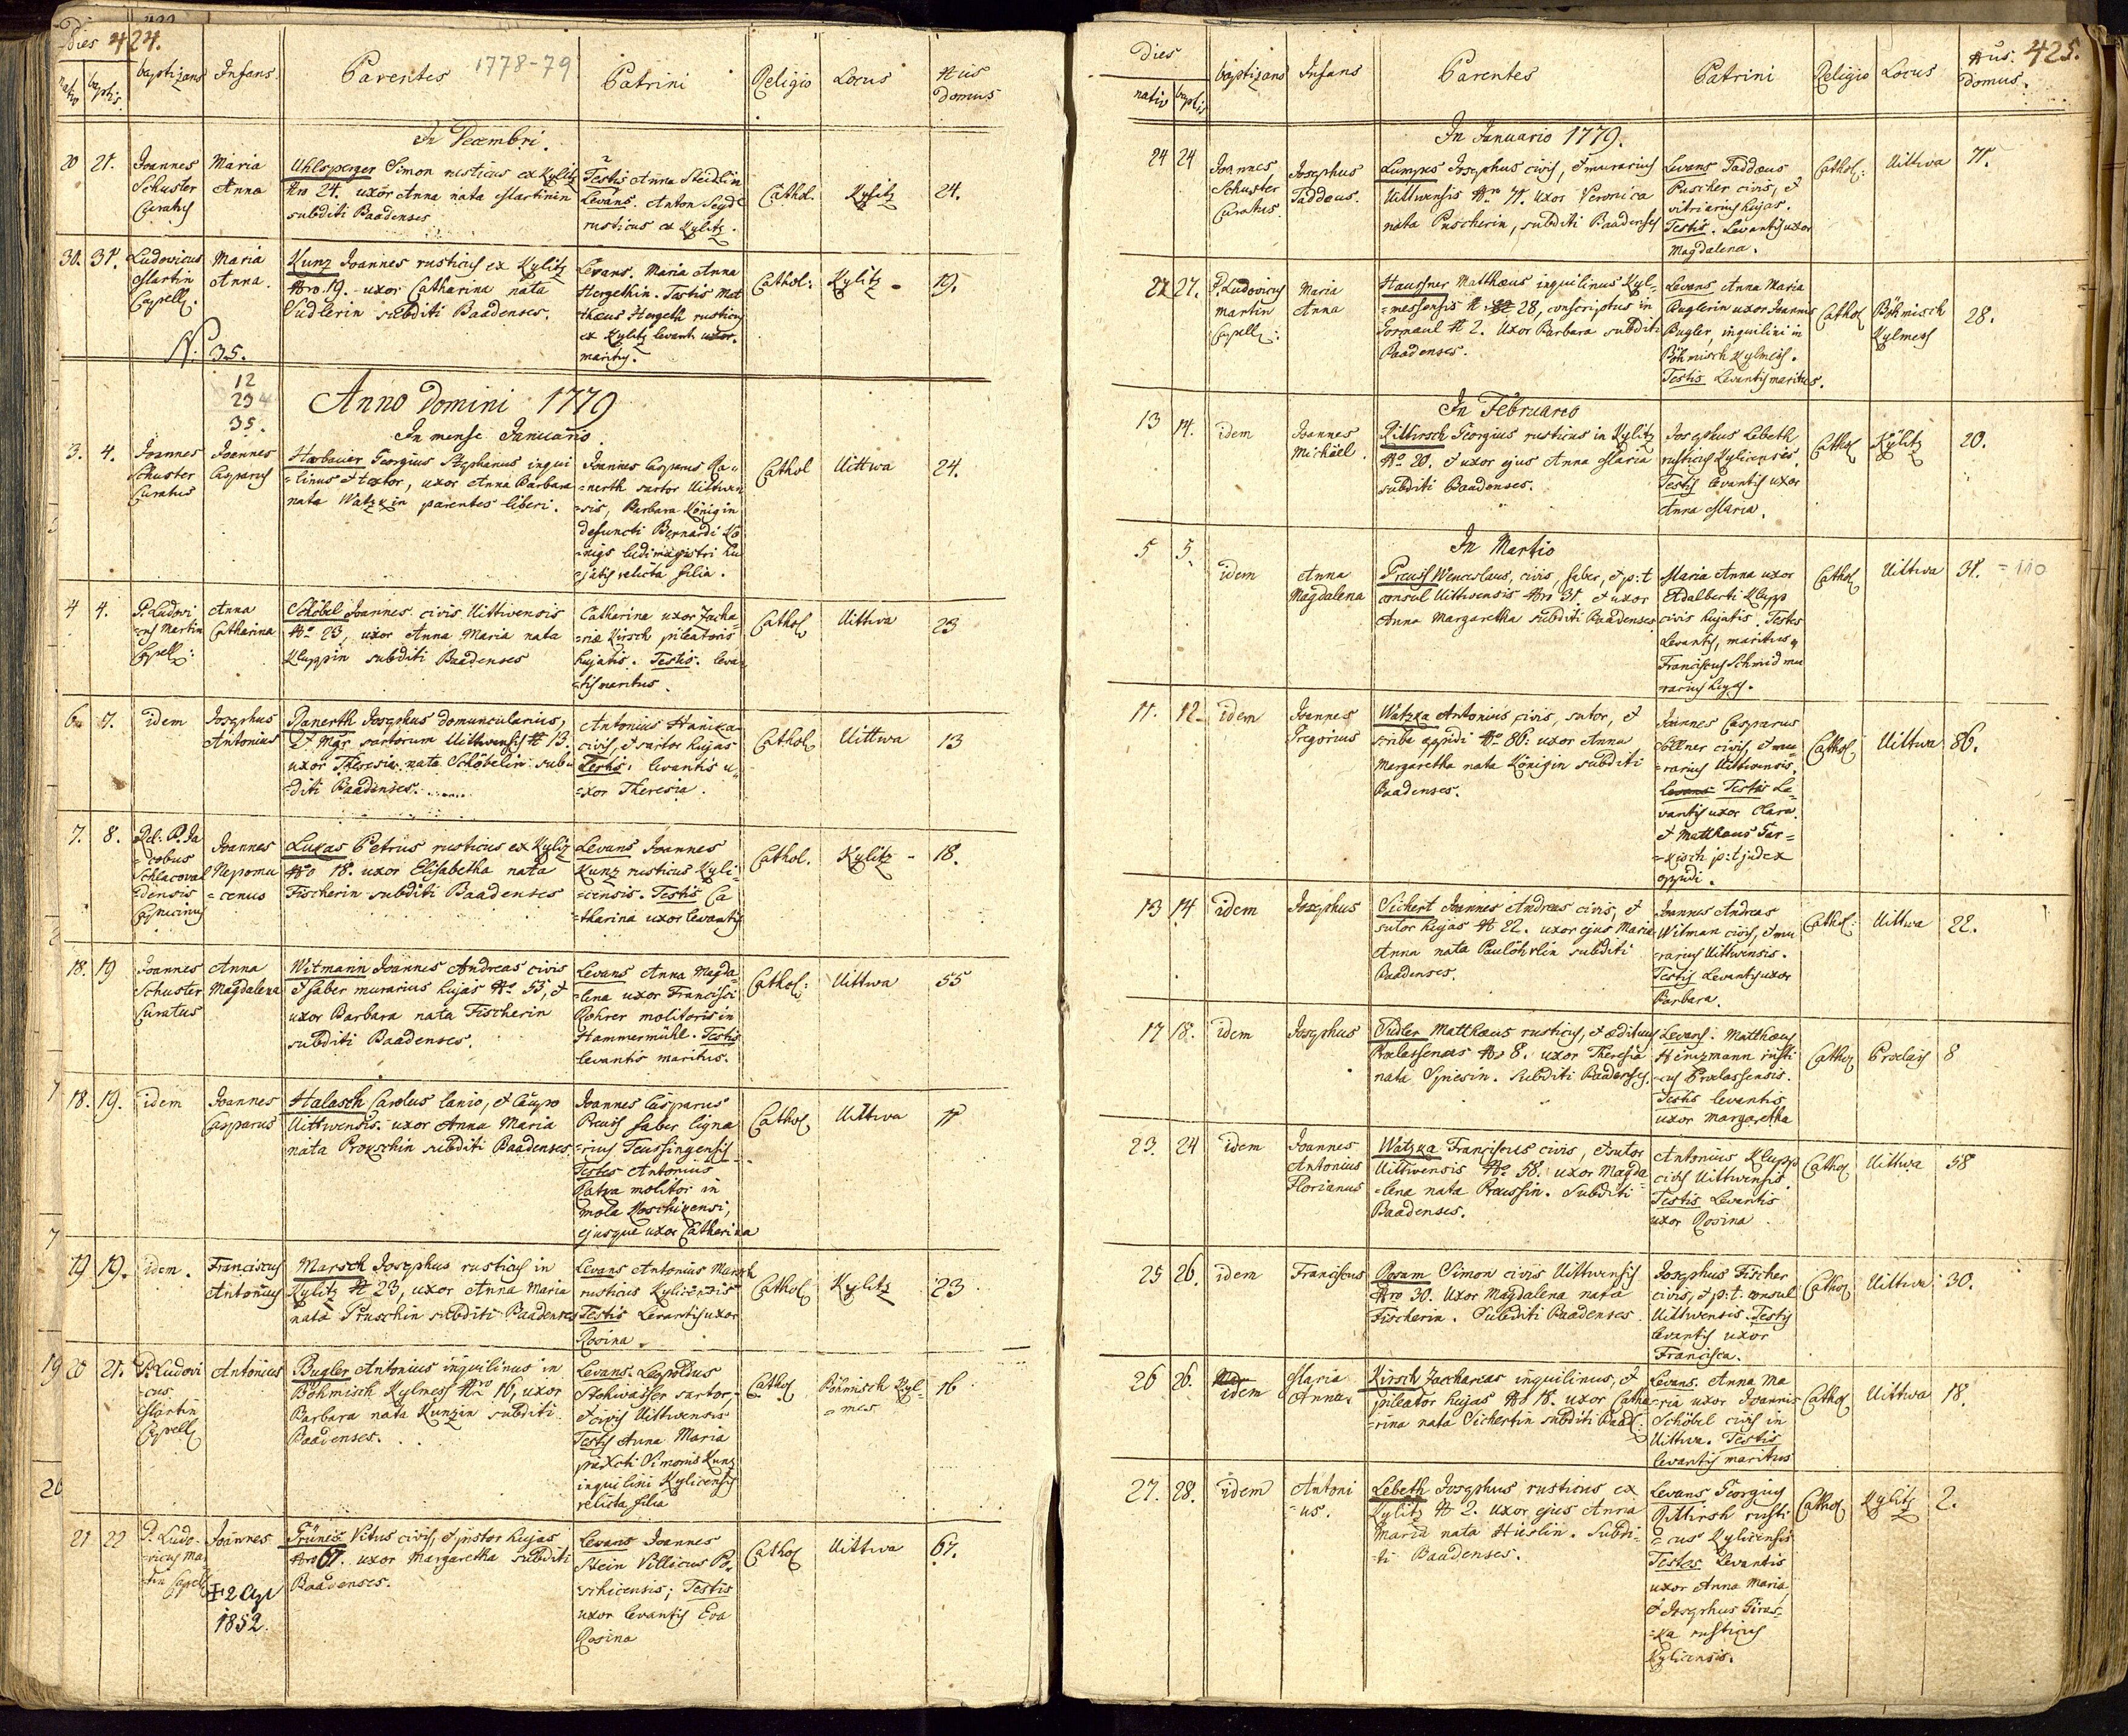 Dies 424.
nativ baptis. baptizans Infans. Parentes 1778-79 Patrini Religio Locus Nus domus
In Decembri.
20 21. Joannes Schuster Curatus
Maria Anna
Uhlsperger Simon rusticus ex Kylitz
Nro 24. uxor Anna nata Martinin
subditi Baadenses
Testis Anna Stedlin
Levans. Anton Seydl
rusticus ex Kylitz.
Cathol. Kylitz 24.
30. 31. Ludovicus Martin Capell:
Maria Anna.
Kunz Joannes rusticus ex Kylitz
Nro. 19. uxor Catharina nata
Sudlerin subditi Baadenses.
Levans. Maria Anna
Hergethin. Testis Mat
thæus Hergeth rusticus
ex Kylitz levant: uxor.
maritus.
Cathol: Kylitz 19.
N. 35.
12
23 4
35.
Anno Domini 1779
In mense Januario.
3. 4. Joannes Schuster Curatus
Joannes Casparus
Harbauer Georgius Stephanus inqui
=linus et textor, uxor Anna Barbara
nata Watzkin parentes liberi.
Joannes Casparus Ra=
=nerth sartor Uittwen
=sis, Barbara Königin
defuncti Bernardi Kö
=nigs ludimagistri hu
=jatis relicta filia.
Cathol Uittwa 24.
4 4. P. Ludovi
=cus Martin
Capell:
Anna Catharina
Schöbel Joannes civis Uittwensis
No. 23, uxor Anna Maria nata
Kluppin subditi Baadenses
Catharina uxor Zacha=
=riæ Kirsch pileatoris
hujatis. Testis. leva=
=tis maritus.
Cathol Uittwa 23
6 7. idem Josephus Antonius
Ranerth Josephus domuncularius,
et Mgr sartorum Uittwensis N 13.
uxor Theresia nata Schöbelin sub=
=diti Baadenses.
Antonius Hanika
civis, et sartor hujas
Testis. levantis u=
=xor Theresia.
Cathol Uittwa 13
7. 8. Rel: P. Ja
=cobus
Schlacoval
=densis
Capucinus
Joannes Nepomu
=cenus
Lukas Petrus rusticus ex Kylitz
Nro 18. uxor Elisabetha nata
Fischerin subditi Baadenses
Levans Joannes
Kunz rusticus Kyli=
=censis. Testis Ca
=tharina uxor levantis
Cathol. Kylitz 18.
18. 19 Joannes Schuster Curatus
Anna Magdalena
Witmann Joannes Andreas civis
et faber murarius hujas No. 55, et
uxor Barbara nata Fischerin
subditi Baadenses.
Levans Anna Magda=
=lena uxor Francisci
Rohrer molitoris in
Hammermühl. Testis
levantis maritus.
Cathol: Uittwa 55
18. 19. idem Joannes Casparus
Halasch Carolus lanio, et caupo
Uittwensis. uxor Anna Maria
nata Prouschin subditi Baadenses
Joannes Casparus
Preuss faber ligna
=rius Teussingensis
Testes Antonius
Patra molitor in
mola Koschizensi,
ejusque uxor Catharina
Cathol Uittwa 11
19 19. idem. Franciscus Antonius
Marsch Josephus rusticus in
Kylitz N 23, uxor Anna Maria
nata Pruschin subditi Baadenses
Levans Antonius Marsch
rusticus Kylicensis
Testis Levantis uxor
Rosina.
Cathol Kylitz 23
20 21. P. Ludovi
=cus
Martin
Capell
Antonius
Bugler Antonius inquilinus in
Böhmisch Kylmes Nro 16, uxor
Barbara nata Kunzin subditi
Baadenses.
Levans. Leopoldus
Stohwasser sartor,
et civis Uittwensis
Testis Anna Maria
prædicti Simonis Kunz
inquilini Kylicensis
relicta filia
Cathol Böhmisch Kyl=
=mes 16
21 22 P. Ludo=
vicus Ma
=tin Capell
Joannes
+ 2 Apr
1852.
Grüner Vitus civis, et pistor hujas
Nro 67. uxor Margaretha subditi
Baadenses.
Levans Joannes
Stein Villicus Po=
=schicensis; Testis
uxor levantis Eva
Rosina
Cathol Uittwa 67.
Dies nativ baptis baptizans Infans Parentes Patrini Religio Locus Nus. domus. 425.
In Januario 1779.
24 24 Joannes Schuster Curatus.
Josephus Taddæus.
Lumpes Josephus civis, et murarius
Uittwensis No. 71. uxor Veronica
nata Puscherin, subditi Baadenses
Levans Taddæus
Puscher civis, et
vitriarius hujas.
Testis. Levantis uxor
Magdalena.
Cathol: Uittwa 71.
27 27. P. Ludovicus Martin Capell:
Maria Anna
Haussner Matthæus inquilinus Kyl=
=messensis N. 28, conscriptus in
Gosmaul N 2. Uxor Barbara subditi
Baadenses.
Levans Anna Maria
Buglerin uxor Joannis
Bugler, inquilini in
Böhmisch Kylmess.
Testis Levantis maritus.
Cathol Böhmisch Kylmess 28.
In Februario
13 14. idem Joannes Michäel.
Rittirsch Georgius rusticus in Kylitz
No. 20. et uxor ejus Anna Maria
subditi Baadenses.
Josephus Lebeth
rusticus Kylicensis.
Testis levantis uxor
Anna Maria.
Cathol Kÿlitz 20.
In Martio
5 5. idem Anna Magdalena
Preuss Wenceslaus, civis, faber, et p:t
consul Uittwensis Nro 31 et uxor
Anna Margaretha subditi Baadenses
Maria Anna uxor
Adalberti Klupp
civis hujatis. Testes
Levantis, maritus,
Franciscus Schmid mu
rarius hujas.
Cathol Uittwa 31. = 110
11. 12. idem Joannes Gregorius
Watzka Antonius civis, sutor, et
scriba oppidi No 86: uxor Anna
Margaretha nata Königin subditi
Baadenses.
Joannes Casparus
civis, et mu=
=rarius Uittwensis.
levans Testes Le=
vantis uxor Clara.
et Matthæus Tur=
=kisch p:t judex
oppidi.
Cathol Uittwa 86.
13 14 idem Josephus
Sichert Joannes Andreas civis, et
sutor hujas N 22. uxor ejus Maria
Anna nata Paulöhrlin subditi
Baadenses.
Joannes Andreas
Witman civis, et mu
=rarius Uittwensis.
Testis Levantis uxor
Barbara.
Cathol: Uittwa 22.
17 18. idem Josephus
Sudler Matthæus rusticus, et ædituus
Prælassensis No 8. uxor Theresia
nata Spiesin. subditi Baadenses.
Levans. Matthæus
Heinzmann rusti
=cus Prælassensis.
Testis levantis
uxor Margaretha
Cathol Prælass 8
23. 24 idem Joannes Antonius Florianus
Watzka Franciscus civis, et sutor
Uittwensis No. 58. uxor Magda
=lena nata Preussin. Subditi
Baadenses.
Antonius Klupp
civis Uittwensis.
Testis Levantis
uxor Rosina.
Cathol Uittwa 58
25 26. idem Franciscus
Rosam Simon civis Uittwensis
Nro 30. Uxor Magdalena nata
Fischerin. Subditi Baadenses
Josephus Fischer
civis, et p:t. consul
Uittwensis. Testis
levantis uxor
Francisca.
Cathol Uittwa 30.
26 26. idem Maria Anna.
Kirsch Zacharias inquilinus, et
pileator hujas No 18. uxor Catha
=rina nata Sichertin subditi Baad:
Levans. Anna Ma
=ria uxor Joannis
Schöbel civis in
Uittwa. Testis
levantis maritus
Cathol Uittwa 18.
27. 28. idem Antoni
=us.
Lebeth Josephus rusticus ex
Kylitz N 2. uxor ejus Anna
Maria nata Hüslin. Subdi=
=ti Baadenses.
Levans Georgius
Rittirsh rusti
=cus Kylicensis
Testes Levantis
uxor Anna Maria,
et Josephus Giras=
=ka rusticus
Kylicensis.
Cathol Kylitz 2.